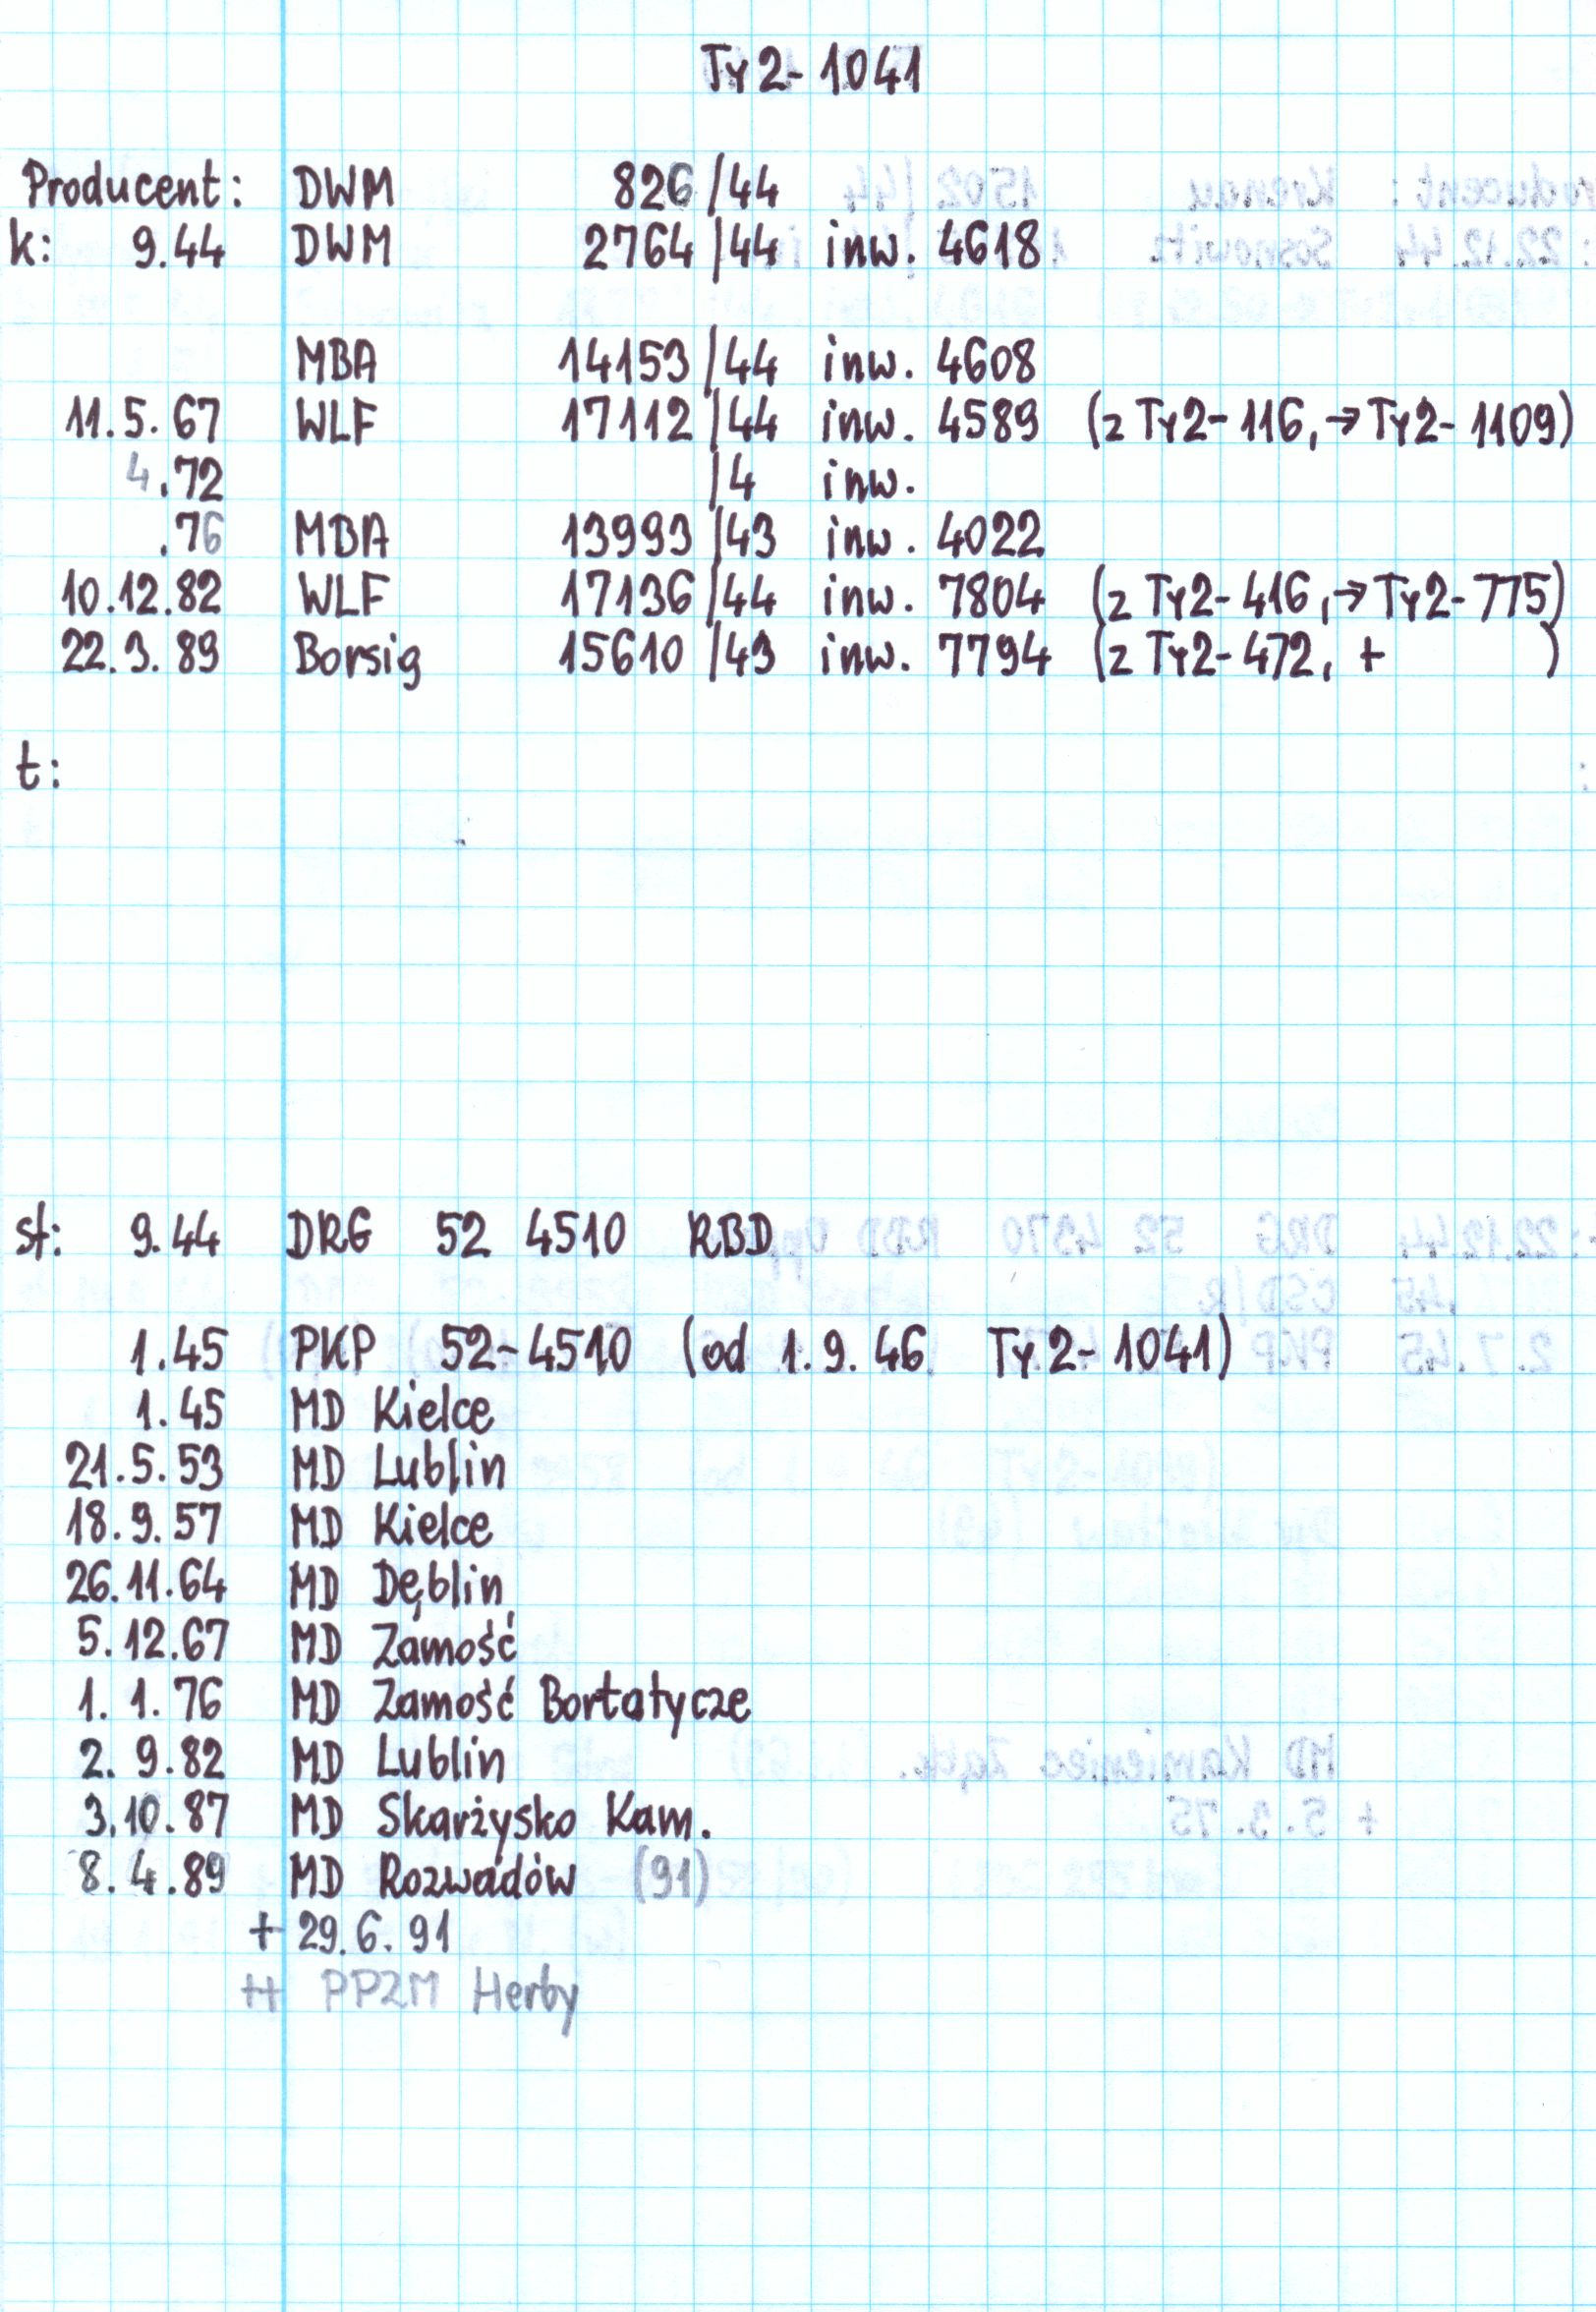 Ty2-1041
Producent: DWM 826/44
k: 9.44 DWM 2764/44 inw. 4618
MBA 14153/44 inw. 4608
11.5.67 WLF 17112/44 inw. 4589 (z Ty2-116, → Ty2-1109)
4.72 /4 inw.
.76 MBA 13993/43 inw. 4022
10.12.82 WLF 17136/44 inw. 7804 (z Ty2-416, → Ty2-775)
22.3.89 Borsig 15610/43 inw. 7794 (z Ty2-472, + )
t:
st: 9.44 DRG 52 4510 RBD
1.45 PKP 52-4510 (od 1.9.46 Ty2-1041)
1.45 MD Kielce
21.5.53 MD Lublin
18.9.57 MD Kielce
26.11.64 MD Dęblin
5.12.67 MD Zamość
1.1.76 MD Zamość Bortatycze
2.9.82 MD Lublin
3.10.87 MD Skarżysko Kam.
8.4.89 MD Rozwadów (91)
+ 29.6.91
++ PPZM Herby